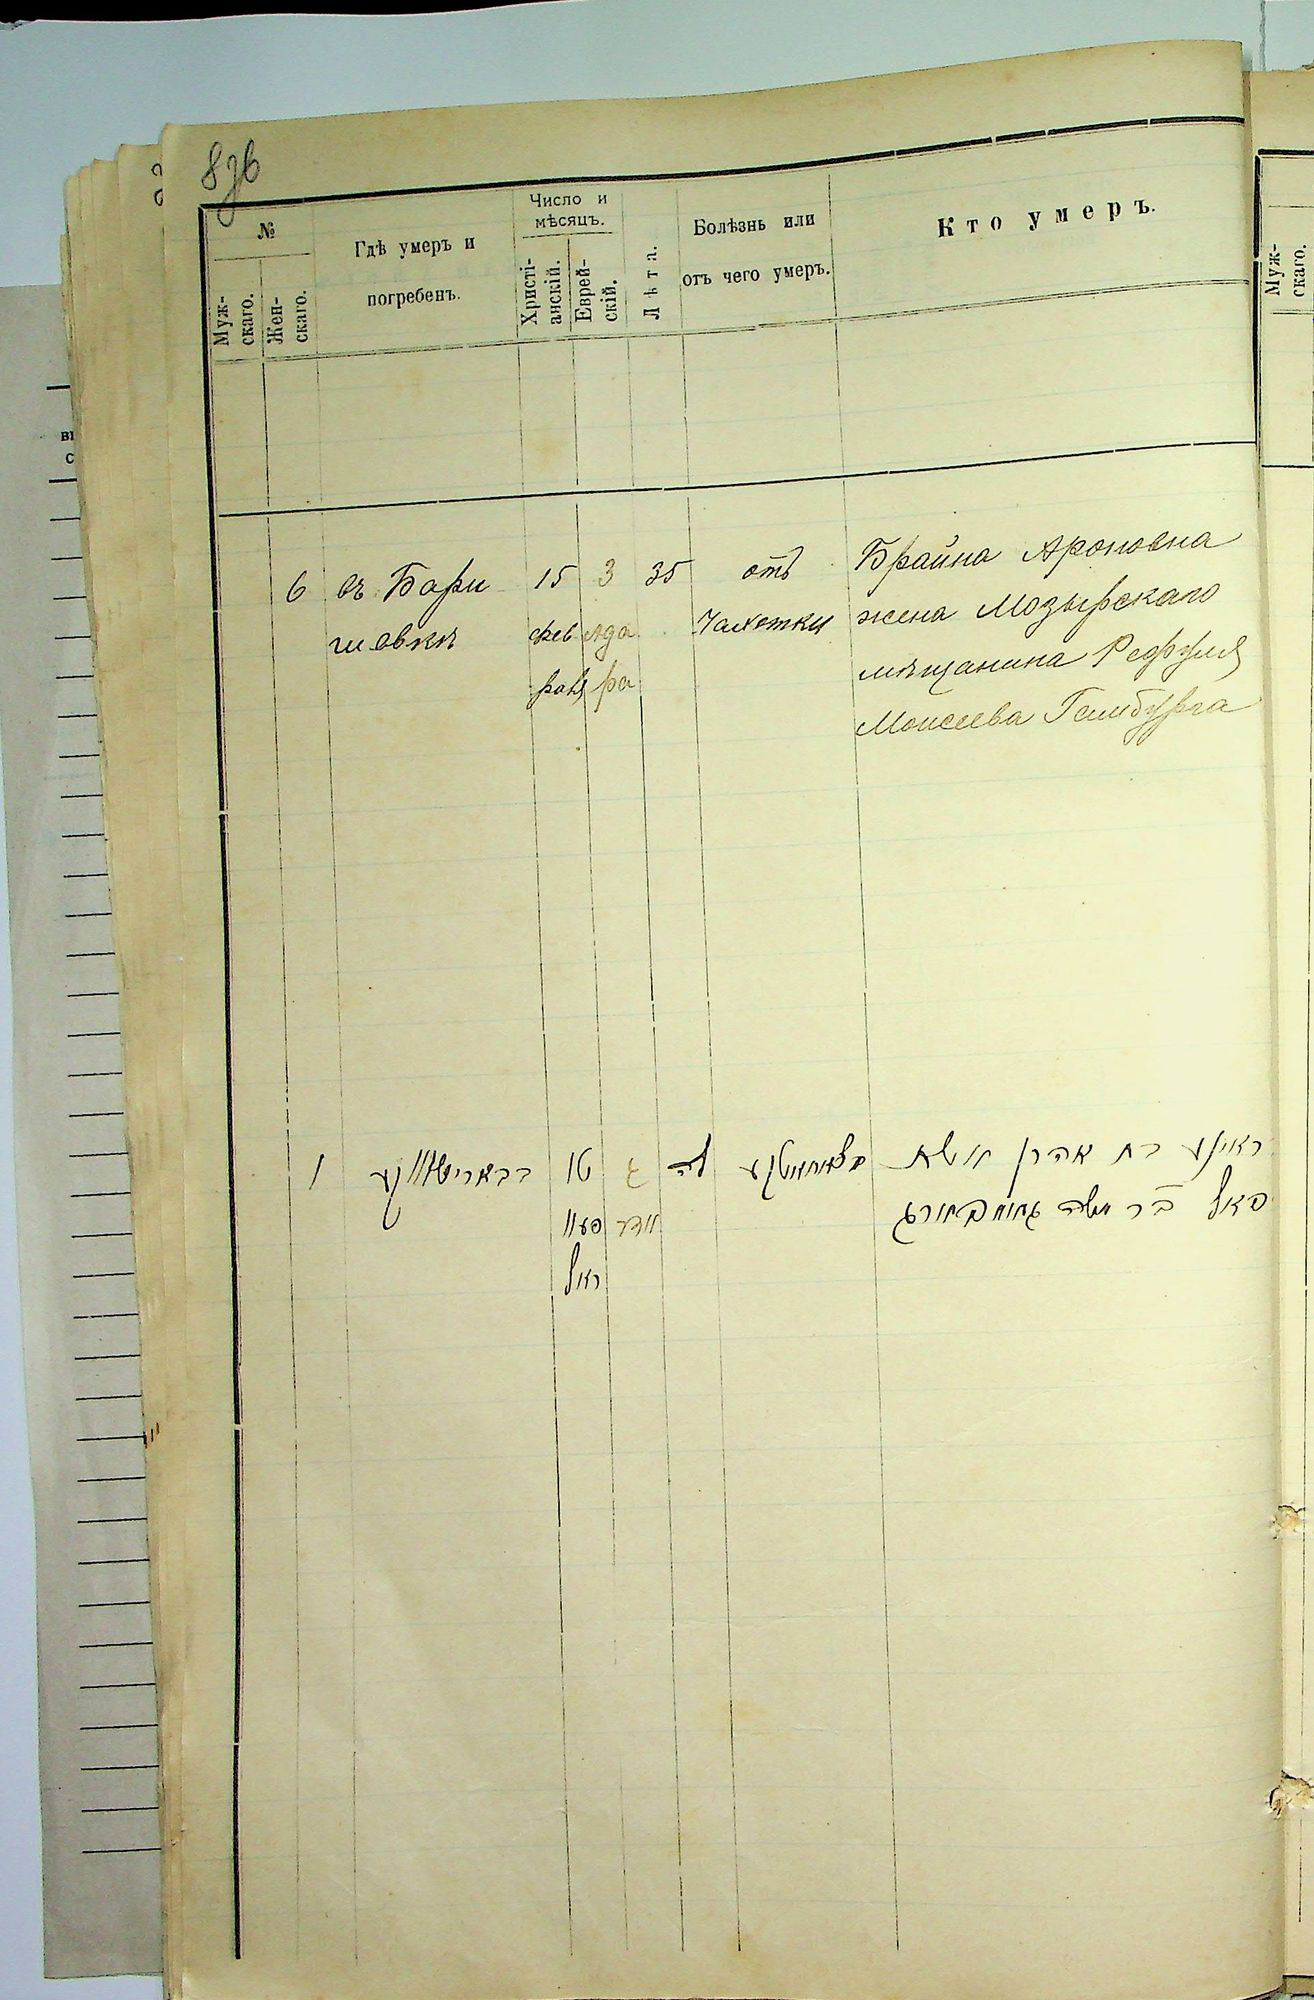 876
№
Муж-
скаго.
Жен-
скаго.
Гдѣ умеръ и
погребенъ.
Число и
мѣсяцъ.
Христі-
анскій.
Еврей-
скій.
Лѣта.
Болѣзнь или
отъ чего умеръ.
Кто умеръ.
6
въ Бари
шовкѣ
15
фев
раля
3
Ада
ра
35
отъ
Чахотки
Брайна Ароновна
жена Мозырскаго
мѣщанина Рефуля
Моисеева Гамбурга
1
בבארישאווקע
טו
פעוו
ראל
ג
אדר
לה
בת אהרן אשת
בר משה גאמבורג
Муж-
скаго.